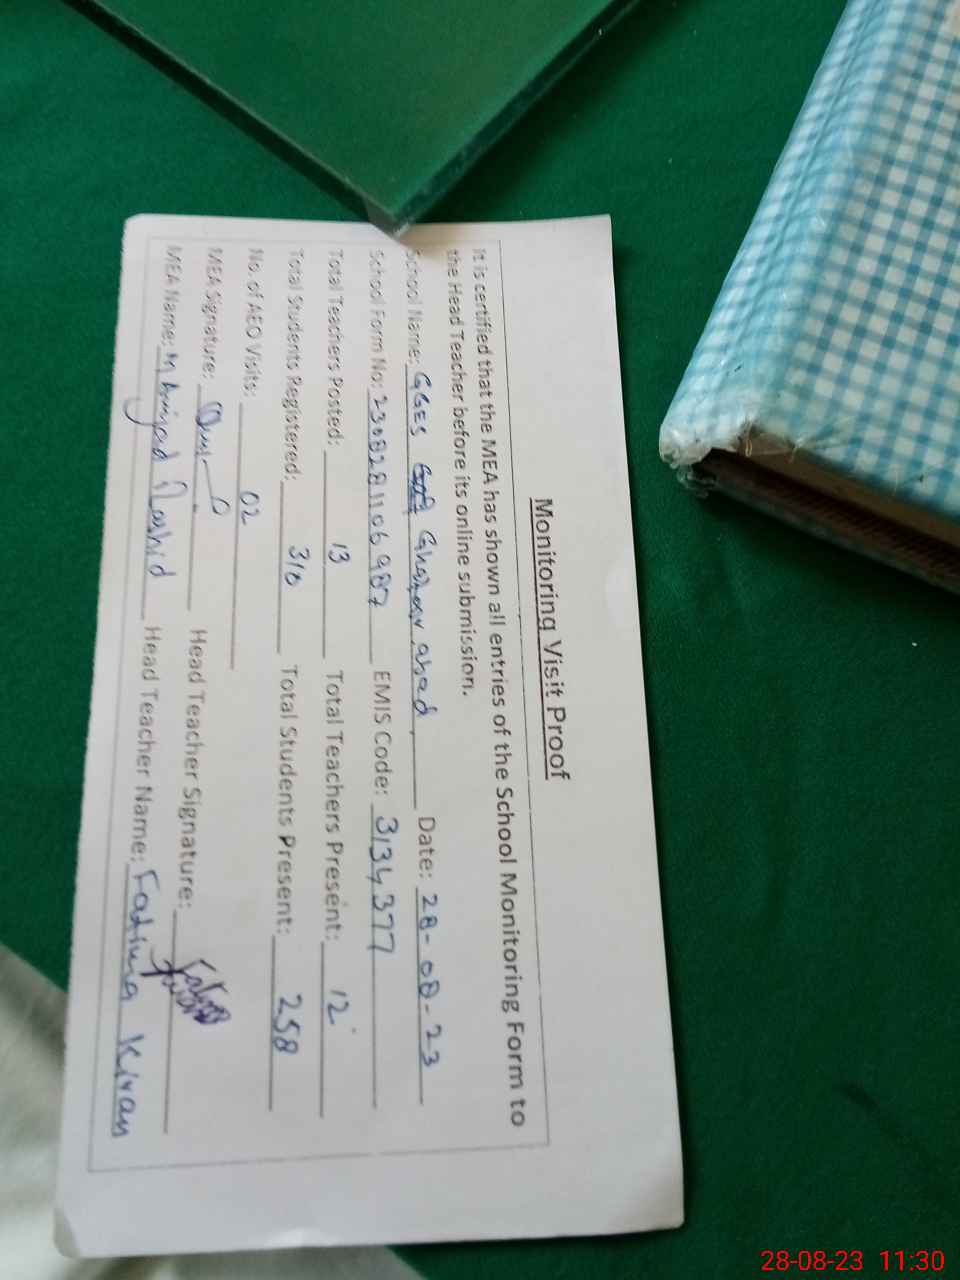 Monitoring Visit Proof
It is certified that the MEA has shown all entries of the School Monitoring Form to
the Head Teacher before its online submission.
School Name: GGES Ghafoor abad Date: 28-08-23
School Form No: 2308281106987 EMIS Code: 3134377
Total Teachers Posted: 13 Total Teachers Present: 12
Total Students Registered: 310 Total Students Present: 258
No. of AEO Visits: 02
MEA Signature: Head Teacher Signature:
MEA Name: M Amjad Rashid Head Teacher Name: Fatima Kiran
28-08-23 11:30